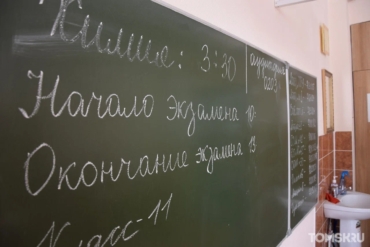 Химия: 3:30
аудитория
Начало экзамена 10
Окончание экзамена 13
Класс - 11
TOMSK.RU